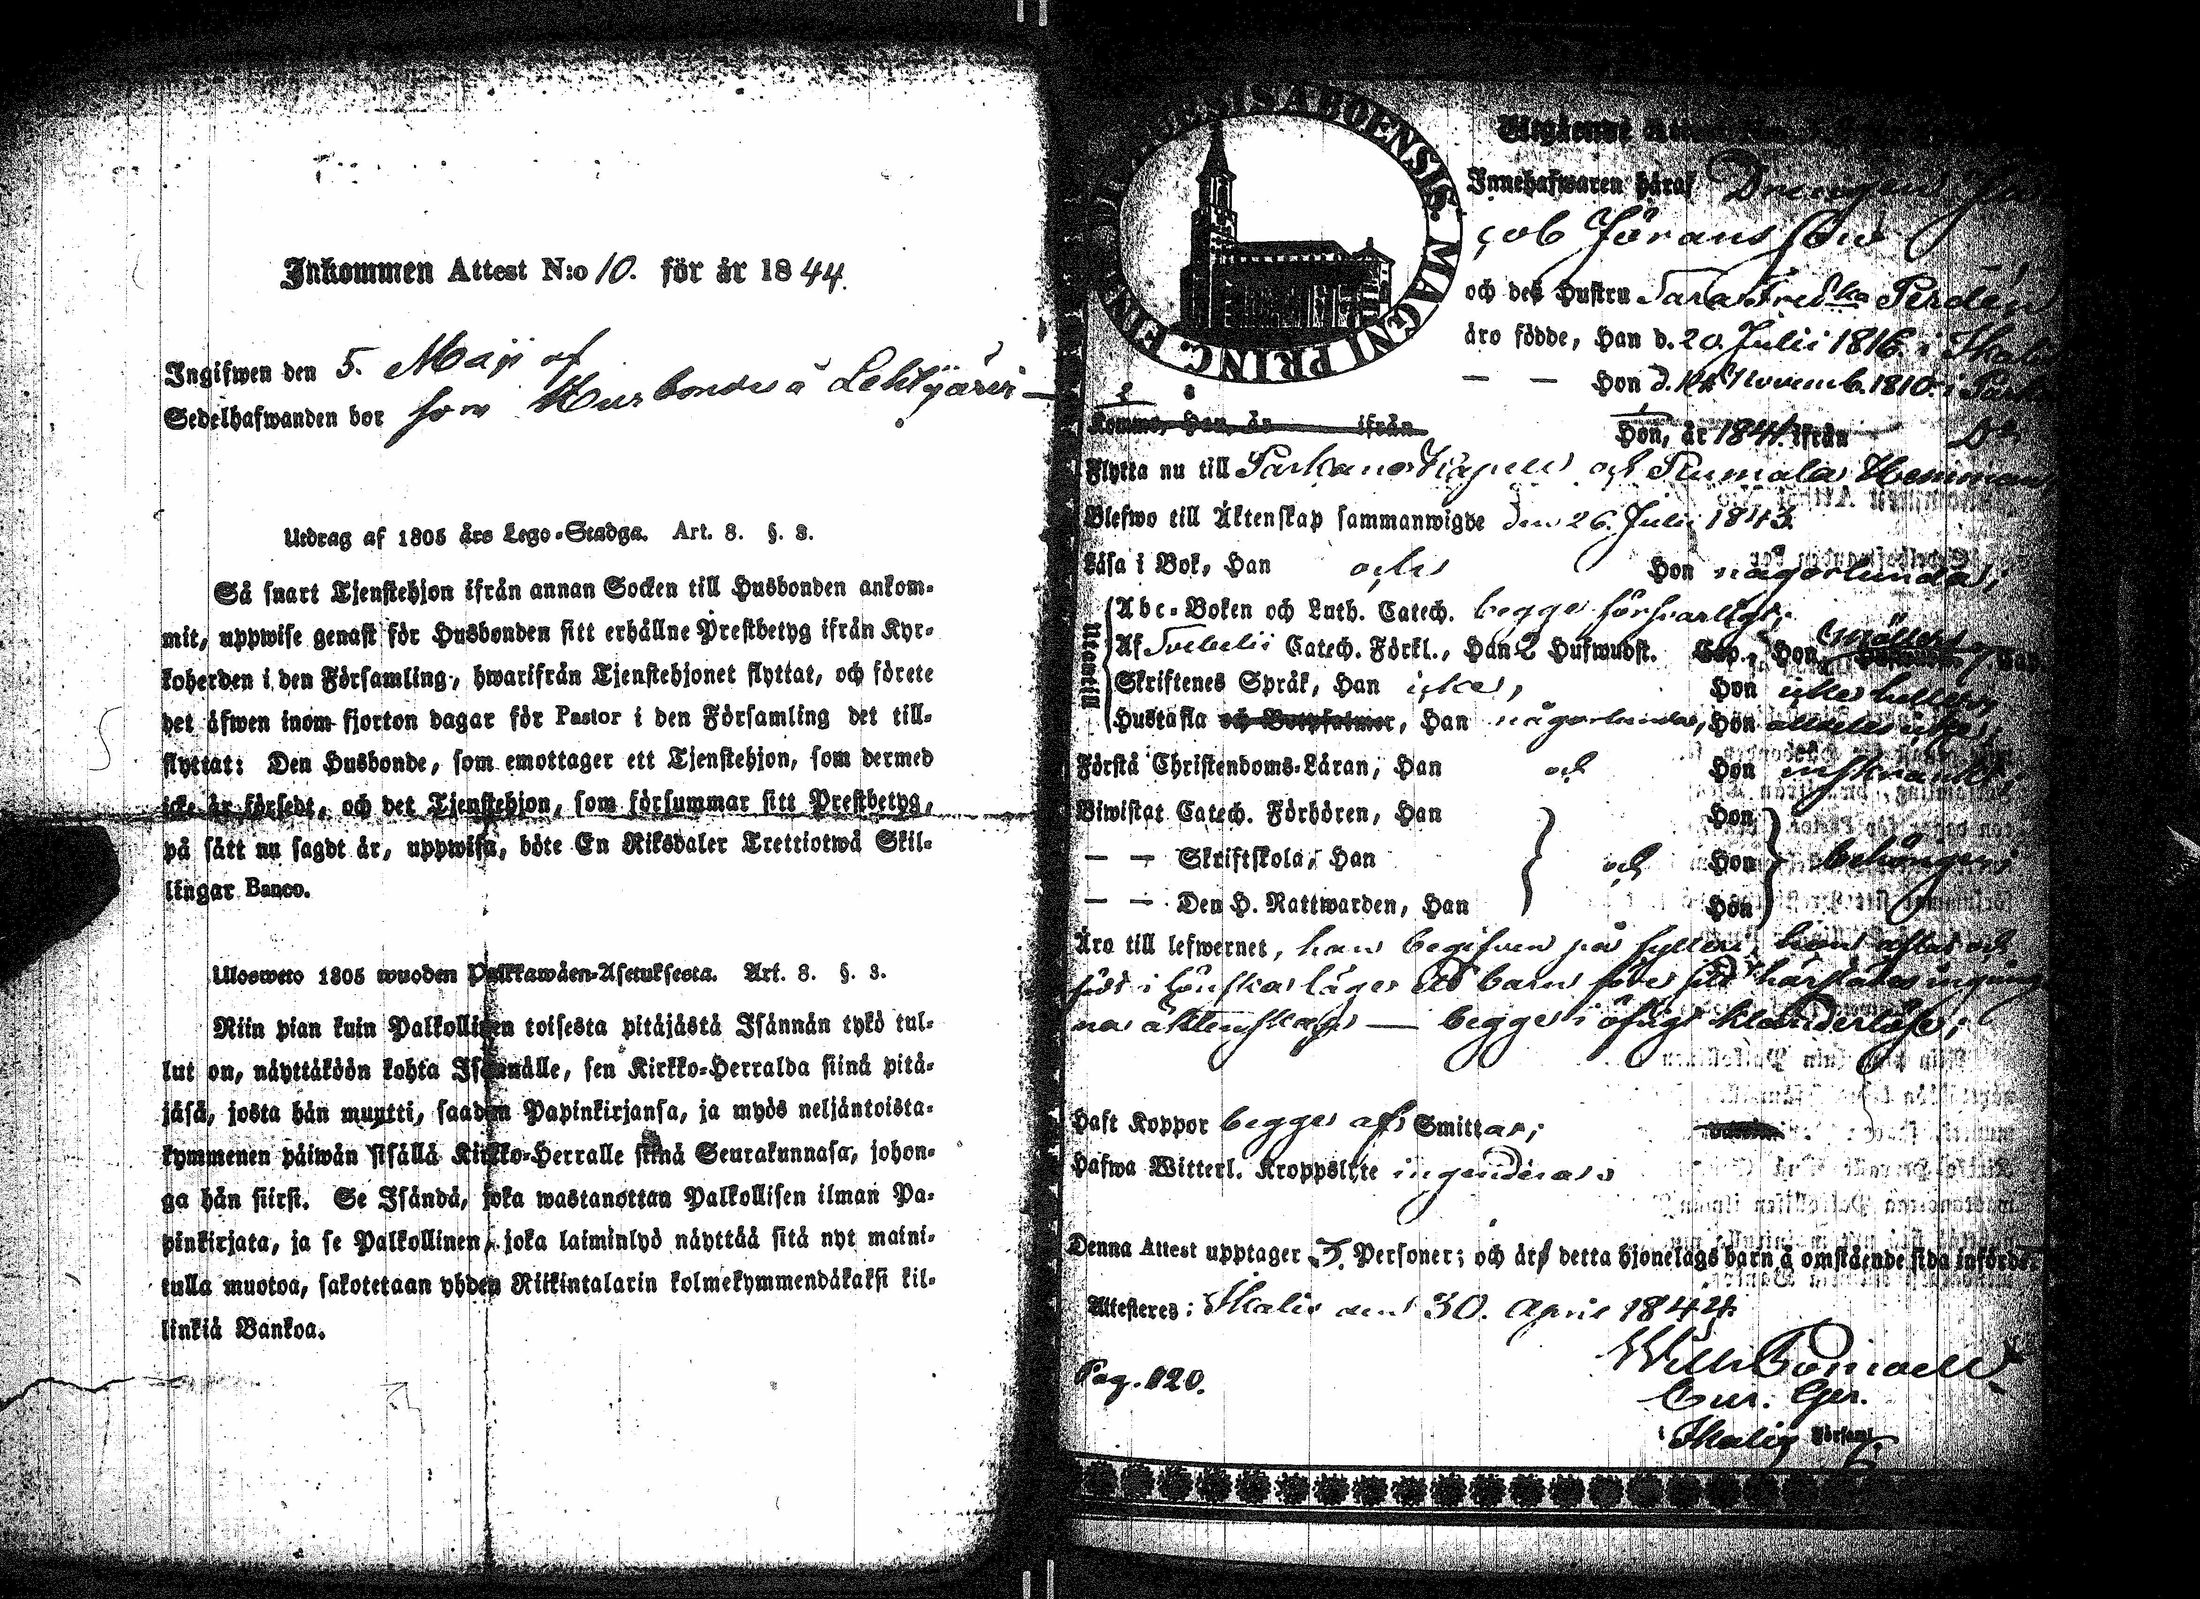 Inkommen Attest N:o 10. för år 1844.
Ingifwen den 5. Maji af
Sedelhafwanden bor som Husbonde å Lehtijärvi
Utdrag af 1805 års Lego-Stadga. Art. 8. §. 3.
Så snart Tjenstehjon ifrån annan Socken till Husbonden ankom-
mit, uppwise genast för Husbonden sitt erhållne Prestbetyg ifrån Kyr-
koherden i den Församling, hwarifrån Tjenstehjonet flyttat, och förete
det äfwen inom fjorton dagar för Pastor i den Församling det till-
flyttat: Den Husbonde, som emottager ett Tjenstehjon, som dermed
icke är försedt, och det Tjenstehjon, som försummar sitt Prestbetyg,
på sätt nu sagdt är, uppwisa, böte En Riksdaler Trettiotwå Skil-
lingar Banco.
Ulosweto 1805 wuoden Palkkawäen-Asetuksesta. Art. 8. §. 3.
Niin pian kuin Palkollinen toisesta pitäjästä Isännän tykö tul-
lut on, näyttäköön kohta Isännälle, sen Kirkko-Herralda siinä pitä-
jäsä, josta hän muutti, saadun Papinkirjansa, ja myös neljäntoista-
kymmenen päiwän sisällä Kirkko-Herralle siinä Seurakunnasa, johon-
ga hän siirsi. Se Isändä, joka wastanottaa Palkollisen ilman Pa-
pinkirjata, ja se Palkollinen, joka laiminlyö näyttää sitä nyt maini-
tulla muotoa, sakotetaan yhden Riikintalarin kolmekymmendäkaksi kil-
linkiä Bankoa.
ENSIS ABOENSIS. MAGNI PRINC. FIN
Utgående Attest
Innehafwaren häraf Drengen Ja-
cob Jöransson
och des Hustru Sara Fredka Perdén
äro födde, Han d. 20 Julii 1816 i Ikalis
— — Hon d. Novemb. 1810 i
Komme, Han, år ifrån Hon, år 1841 ifrån
Flytta nu till Parkano Kapell och Hemman
Blefwo till Äktenskap sammanwigde den 26 Julii 1843.
Läsa i Bok, Han och Hon någorlunda;
Utantill
Abc-Boken och Luth. Catech. begge försvarligt;
Af Svebelii Catech. Förkl., Han 2 Hufwudst. Cap., Hon
Skriftenes Språk, Han icke, Hon icke heller;
Hustafla och Botpsalmer, Han någorlunda, Hon alldeles icke;
Förstå Christendoms-Läran, Han och Hon inskränkt;
Biwistat Catech. Förhören, Han Hon
— — Skriftskola, Han och Hon behörigen;
— — Den H. Nattwarden, Han Hon
Äro till lefwernet, han begifven på fylleri, hon aflat och
födt i lönskaläge ett barn före sitt härstädes ingång-
na äktenskap — begge i öfrigt klanderlöse;
Haft Koppor begge af Smittar;
Hafwa Witterl. Kroppslyte ingendera
Denna Attest upptager 3. Personer; och äro detta hjonelags barn å omstående sida införde.
Attesteres; Ikalis den 30. April 1844.
Pag. 120.
Cur. Ger.
i Ikalis Församl.